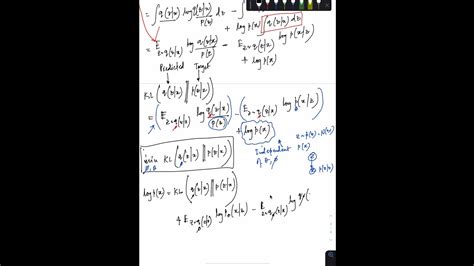 = ∫ q(z|x) log q(z|x) / p(z) dz - ∫
+ log p(x) ∫ q(z|x) dz
= E_{z~q(z|x)} log q(z|x) / p(z) - E_{z~q(z|x)} log p(x|z) + log p(x)
Predicted Target
KL ( q(z|x) || p(z|x) )
= ( E_{z~q(z|x)} log q(z|x) / p(z) ) - ( E_{z~q(z|x)} log p(x|z)
+ log p(x)
Independent
min KL ( q(z|x) || p(z|x) )
log p(x) = KL ( q(z|x) || p(z|x) )
+ E_{z~q(z|x)} log p_θ(x|z) - E_{z~q(z|x)} log q(